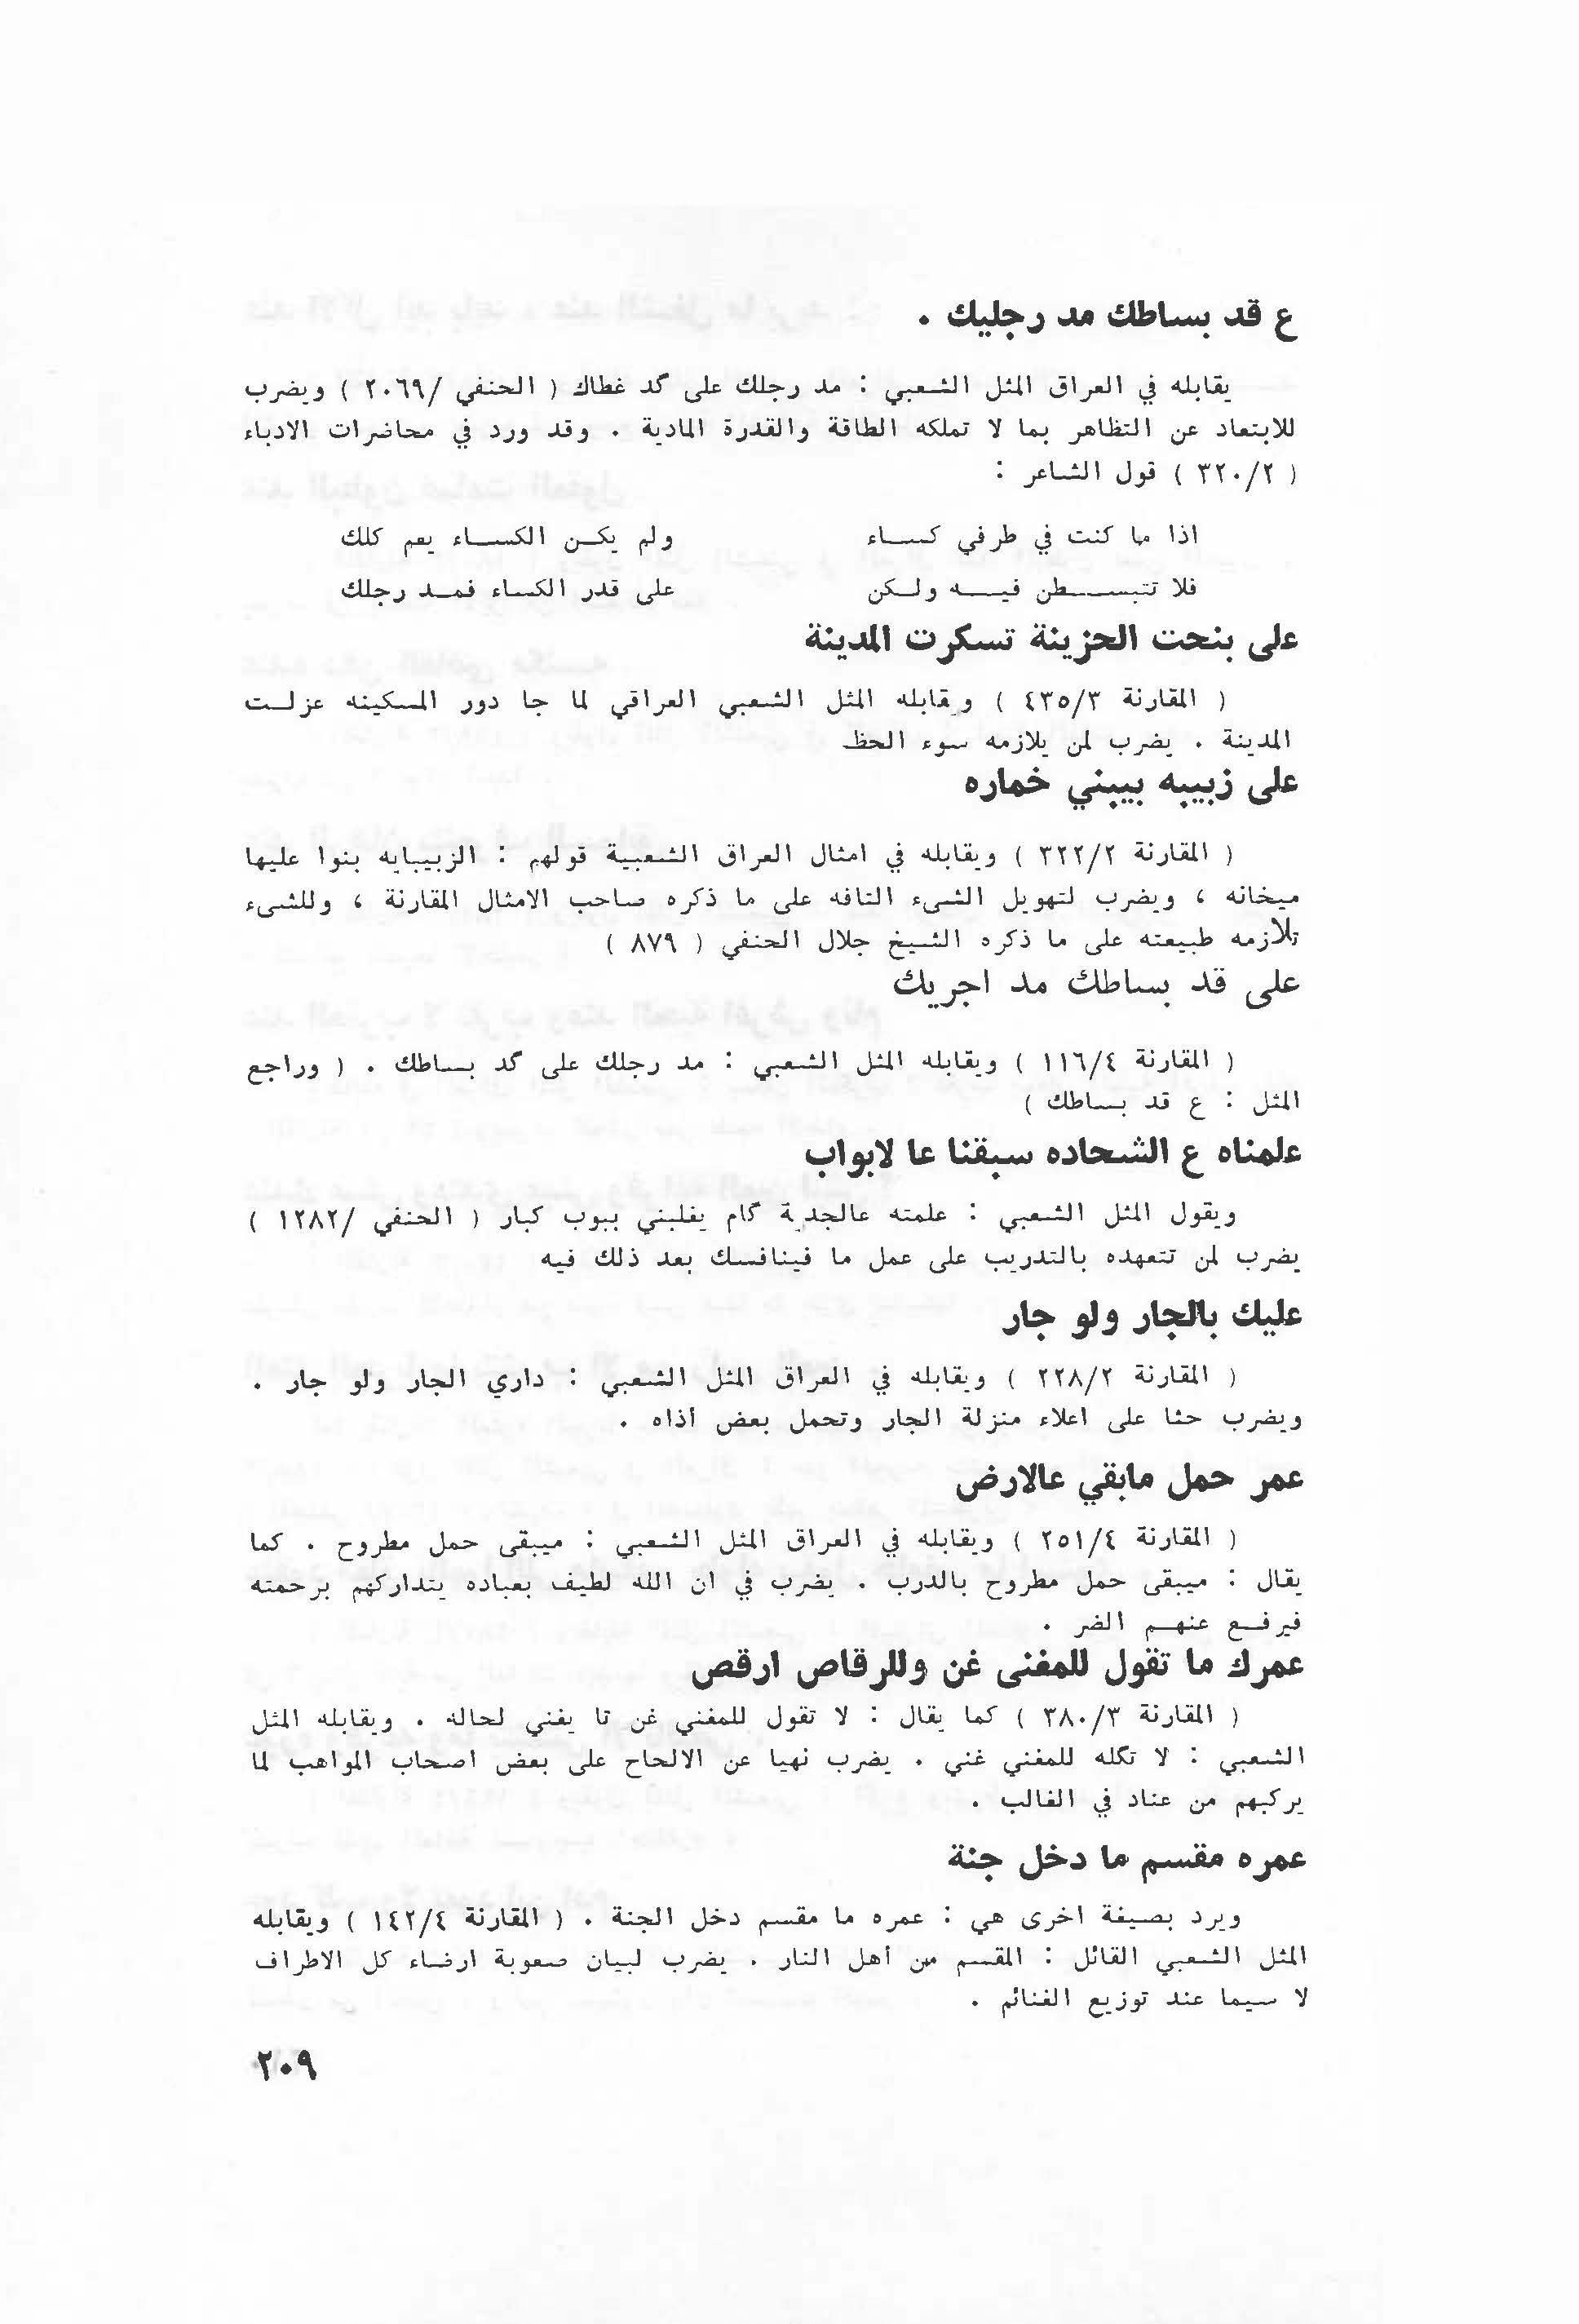 ع قد بساطك مد رجليك .
يقابله في العراق المثل الشعبي : مد رجلك على گد غطاك ( الحنفي /٢٠٦٩ ) ويضرب
للابتعاد عن التظاهر بما لا تملكه الطاقة والقدرة المادية . وقد ورد في محاضرات الادباء
( ٣٢٠/٢ ) قول الشاعر :
اذا ما كنت في طرفي كساء ولم يكن الكساء يعم كلك
فلا تتبسطن فيه ولكن على قدر الكساء فمد رجلك
على بنحت الحزينة تسكرت المدينة
( المقارنة ٤٣٥/٣ ) ويقابله المثل الشعبي العراقي لما جا دور المسكينه عزلت
المدينة . يضرب لمن يلازمه سوء الحظ
على زبيبه بيبني خماره
( المقارنة ٣٢٢/٢ ) ويقابله في امثال العراق الشعبية قولهم : الزبيبايه بنوا عليها
ميخانه ، ويضرب لتهويل الشىء التافه على ما ذكره صاحب الامثال المقارنة ، وللشىء
تلازمه طبيعته على ما ذكره الشيخ جلال الحنفي ( ٨٧٩ )
على قد بساطك مد اجريك
( المقارنة ١١٦/٤ ) ويقابله المثل الشعبي : مد رجلك على گد بساطك . ( وراجع
المثل : ع قد بساطك )
علمناه ع الشحاده سبقنا عا لابواب
ويقول المثل الشعبي : علمته عالجدية گام يغلبني ببوب كبار ( الحنفي /١٢٨٢ )
يضرب لمن تتعهده بالتدريب على عمل ما فينافسك بعد ذلك فيه
عليك بالجار ولو جار
( المقارنة ٢٢٨/٢ ) ويقابله في العراق المثل الشعبي : داري الجار ولو جار .
ويضرب حثا على اعلاء منزلة الجار وتحمل بعض أذاه .
عمر حمل مابقي عالارض
( المقارنة ٢٥١/٤ ) ويقابله في العراق المثل الشعبي : ميبقى حمل مطروح . كما
يقال : ميبقى حمل مطروح بالدرب . يضرب في ان الله لطيف بعباده يتداركهم برحمته
فيرفع عنهم الضر .
عمرك ما تقول للمغنى غن وللرقاص ارقص
( المقارنة ٣٨٠/٣ ) كما يقال : لا تقول للمغني غن تا يغني لحاله . ويقابله المثل
الشعبي : لا تگله للمغني غني . يضرب نهيا عن الالحاح على بعض اصحاب المواهب لما
يركبهم من عناد في الغالب .
عمره مقسم ما دخل جنة
ويرد بصيغة اخرى هي : عمره ما مقسم دخل الجنة . ( المقارنة ١٤٢/٤ ) ويقابله
المثل الشعبي القائل : المقسم من أهل النار . يضرب لبيان صعوبة ارضاء كل الاطراف
لا سيما عند توزيع الغنائم .
٢٠٩